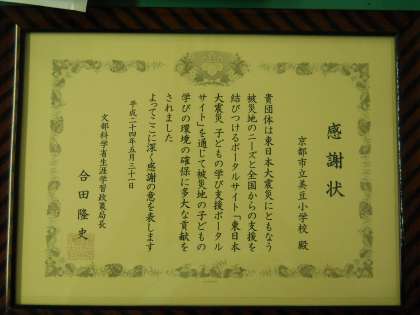 感謝状
京都市立美豆小学校 殿
貴団体は東日本大震災にともなう
被災地のニーズと全国からの支援を
結びつけるポータルサイト「東日本
大震災 子どもの学び支援ポータル
サイト」を通じて被災地の子どもの
学びの環境の確保に多大な貢献を
されました
よってここに深く感謝の意を表します
平成二十四年五月三十一日
文部科学省生涯学習政策局長
合田隆史